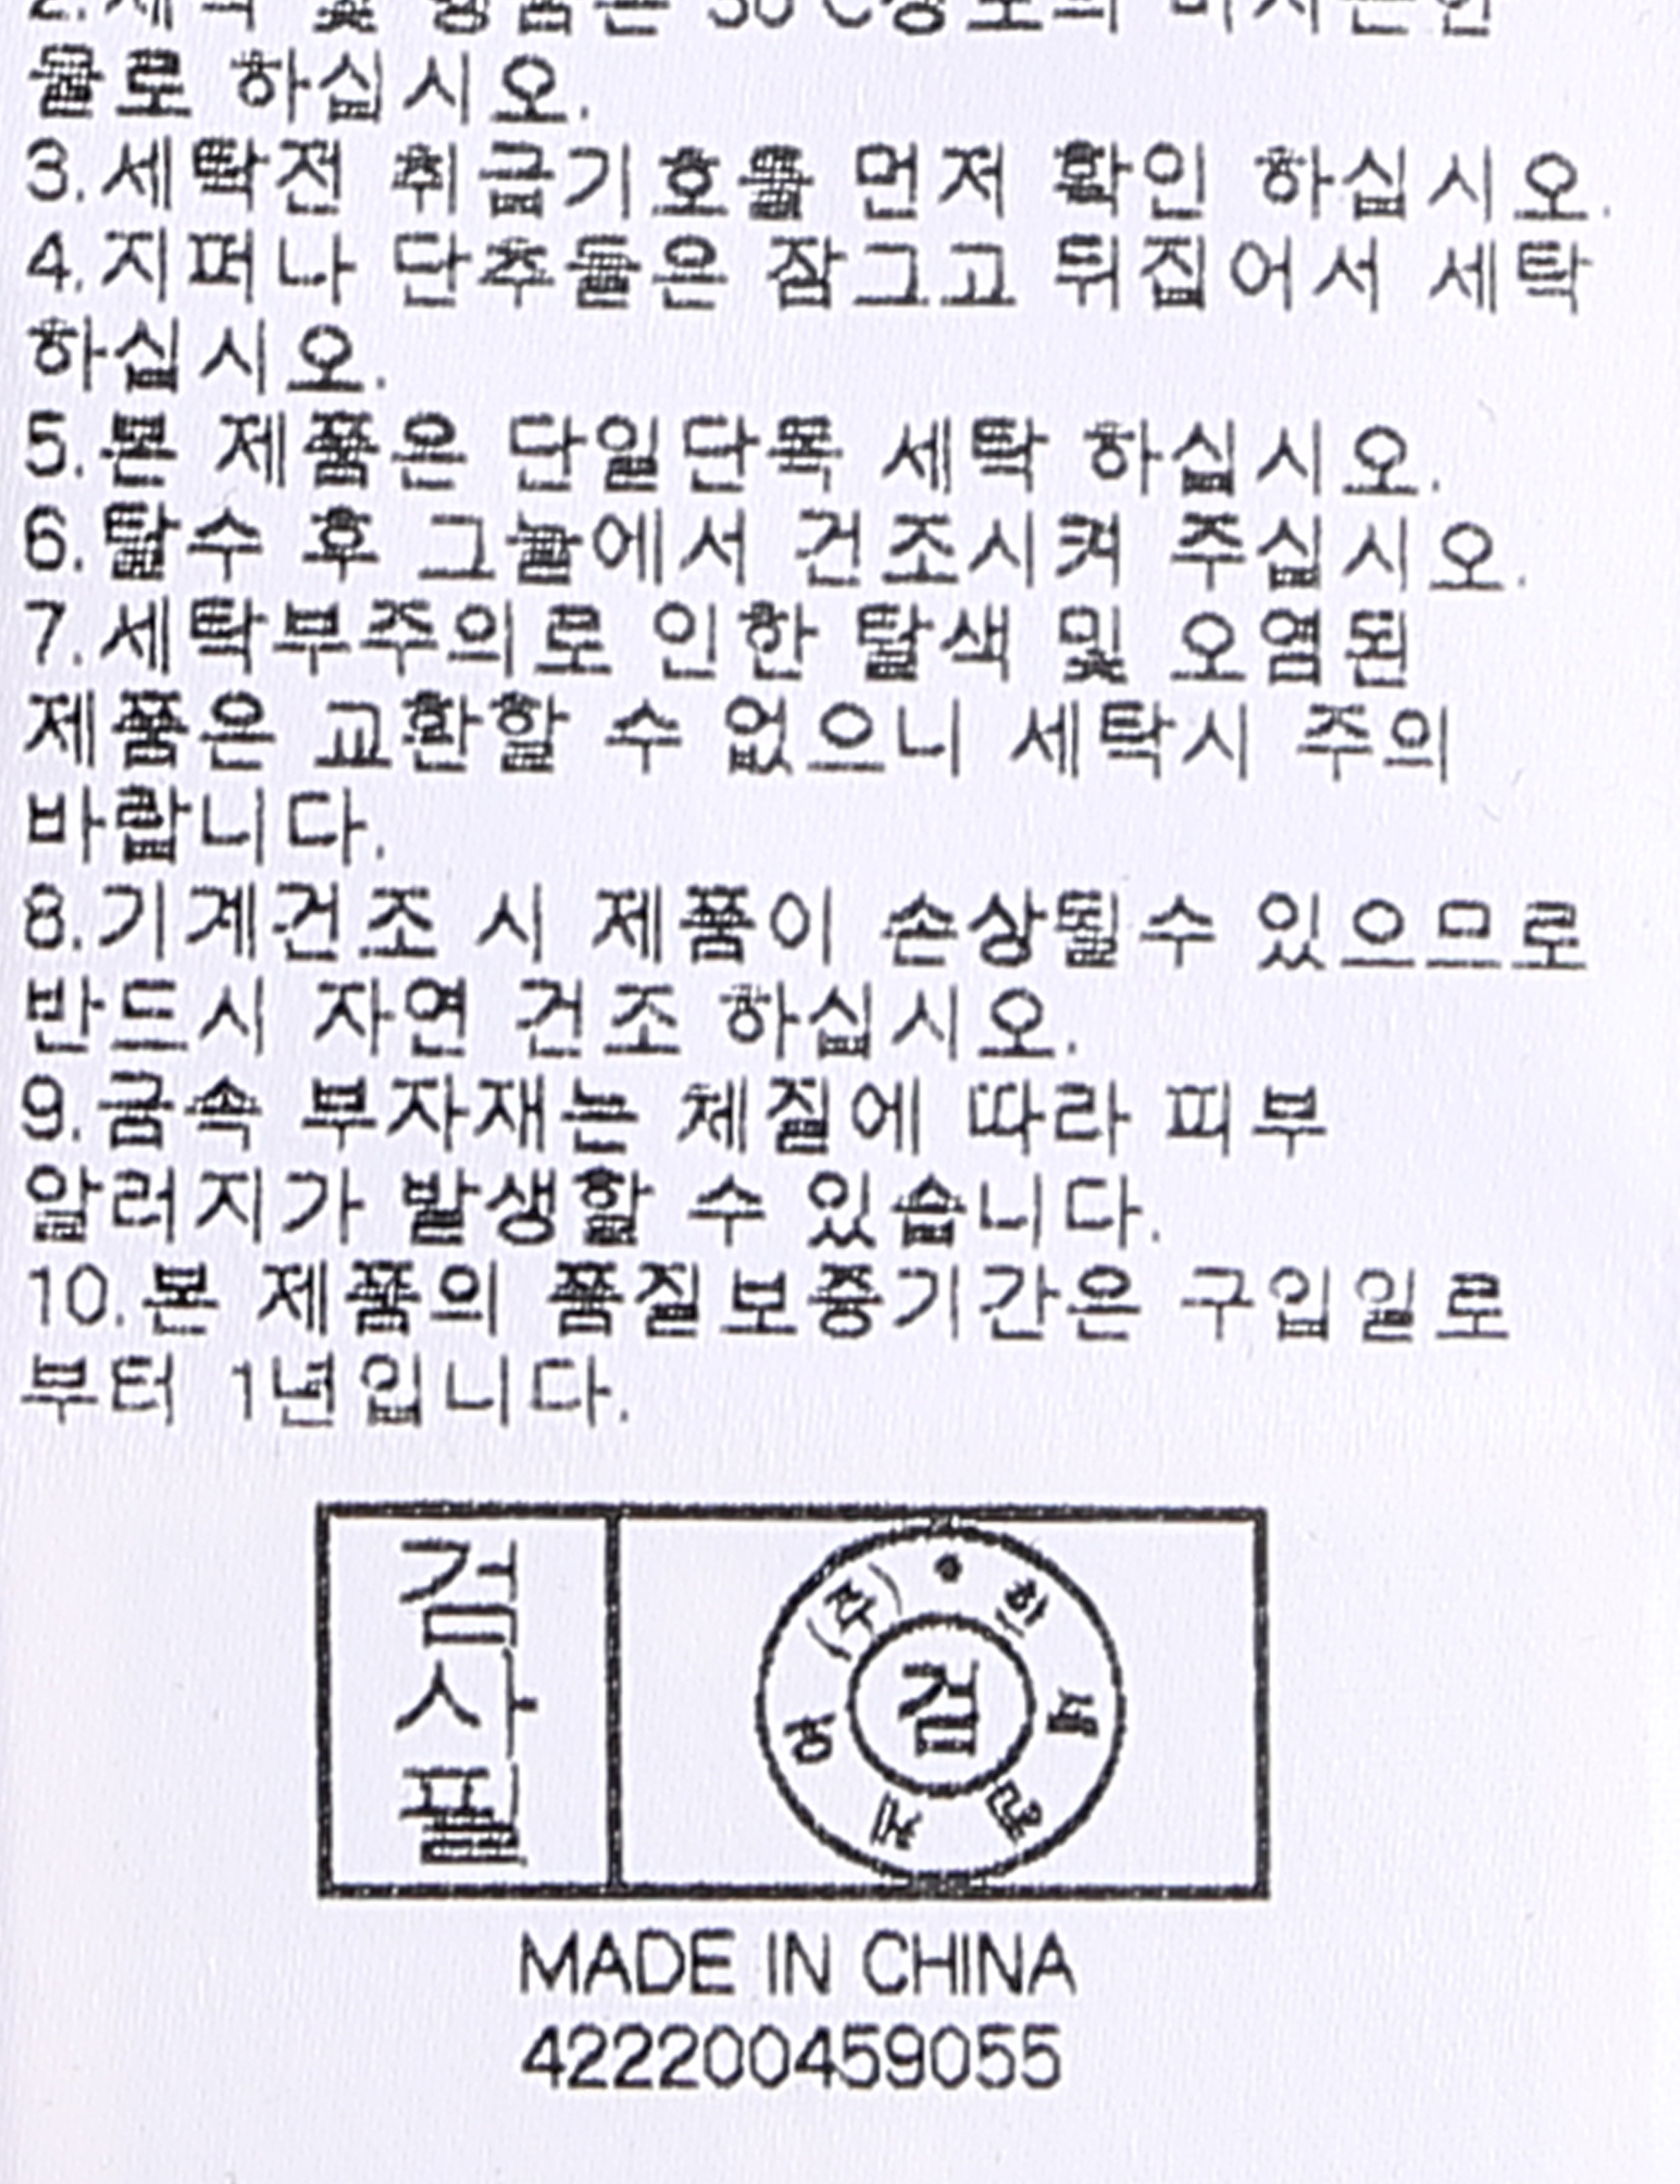 2.세탁 및 헹굼은 30℃정도의 미지근한
물로 하십시오.
3.세탁전 취급기호를 먼저 확인 하십시오.
4.지퍼나 단추들은 잠그고 뒤집어서 세탁
하십시오.
5.본 제품은 단일단독 세탁 하십시오.
6.탈수 후 그늘에서 건조시켜 주십시오.
7.세탁부주의로 인한 탈색 및 오염된
제품은 교환할 수 없으니 세탁시 주의
바랍니다.
8.기계건조 시 제품이 손상될수 있으므로
반드시 자연 건조 하십시오.
9.금속 부자재는 체질에 따라 피부
알러지가 발생할 수 있습니다.
10.본 제품의 품질보증기간은 구입일로
부터 1년입니다.
검
사
필
(주)
검
MADE IN CHINA
422200459055